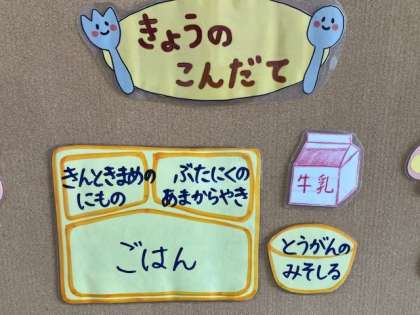 きょうの
こんだて
きんときまめの
にもの
ぶたにくの
あまからやき
ごはん
牛乳
とうがんの
みそしる